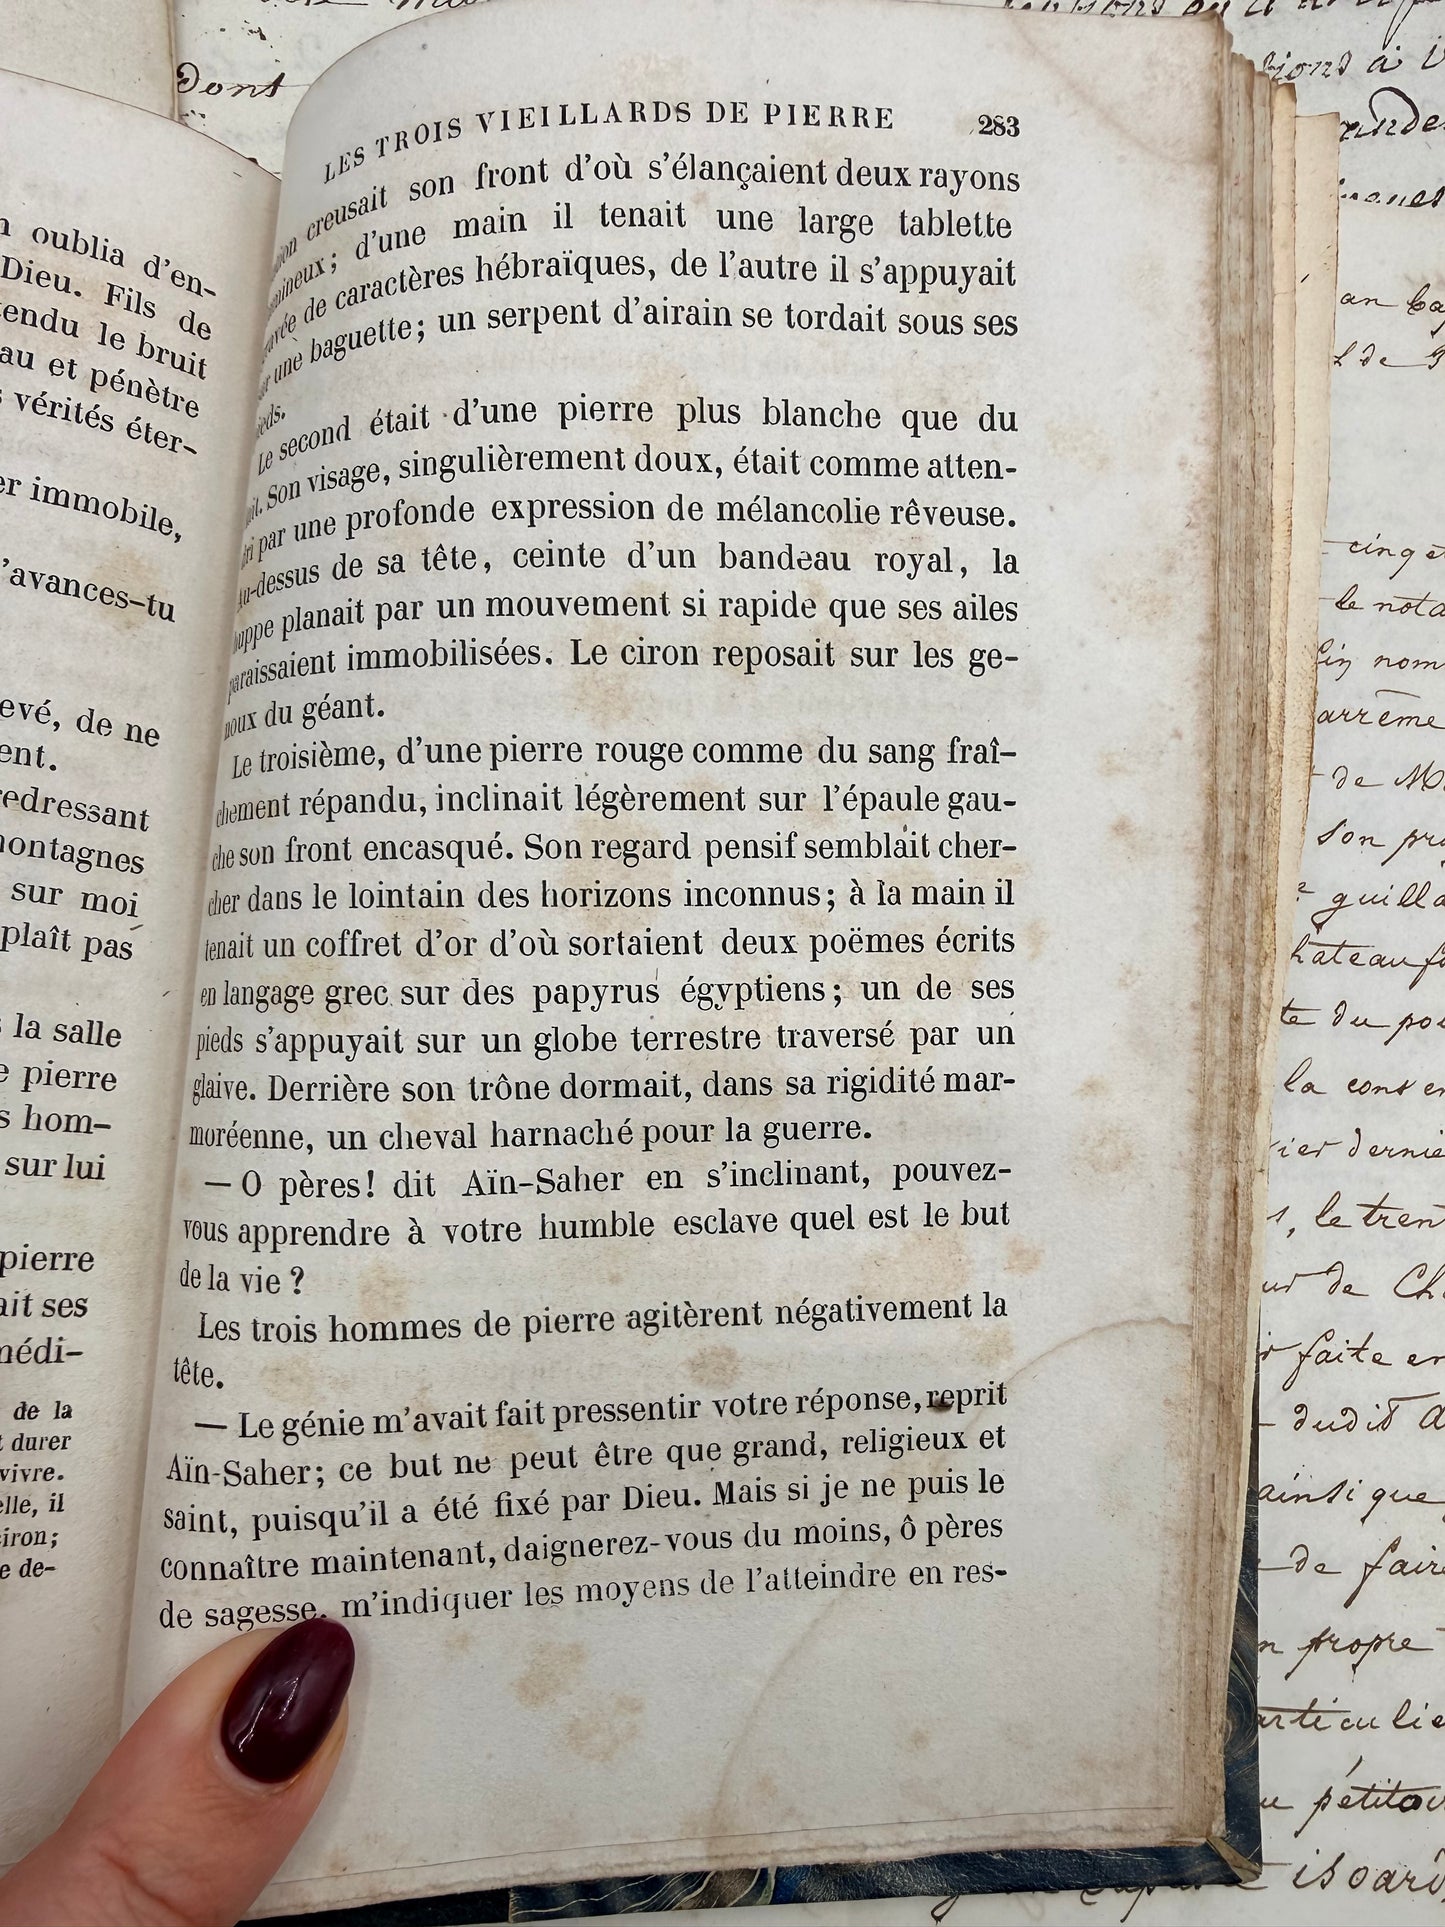 dont
n oublia d'en-
Dieu. Fils de
tendu le bruit
au et pénètre
s vérités éter-
er immobile,
'avances-tu
evé, de ne
ent.
redressant
montagnes
sur moi
plaît pas
s la salle
e pierre
s hom-
sur lui
pierre
ait ses
médi-
de la
t durer
vivre.
elle, il
ciron;
e de-
LES TROIS VIEILLARDS DE PIERRE 283
tation creusait son front d'où s'élançaient deux rayons
lumineux; d'une main il tenait une large tablette
gravée de caractères hébraïques, de l'autre il s'appuyait
sur une baguette; un serpent d'airain se tordait sous ses
pieds.
Le second était d'une pierre plus blanche que du
lait. Son visage, singulièrement doux, était comme atten-
dri par une profonde expression de mélancolie rêveuse.
Au-dessus de sa tête, ceinte d'un bandeau royal, la
huppe planait par un mouvement si rapide que ses ailes
paraissaient immobilisées. Le ciron reposait sur les ge-
noux du géant.
Le troisième, d'une pierre rouge comme du sang fraî-
chement répandu, inclinait légèrement sur l'épaule gau-
che son front encasqué. Son regard pensif semblait cher-
cher dans le lointain des horizons inconnus; à la main il
tenait un coffret d'or d'où sortaient deux poëmes écrits
en langage grec sur des papyrus égyptiens; un de ses
pieds s'appuyait sur un globe terrestre traversé par un
glaive. Derrière son trône dormait, dans sa rigidité mar-
moréenne, un cheval harnaché pour la guerre.
— O pères! dit Aïn-Saher en s'inclinant, pouvez-
vous apprendre à votre humble esclave quel est le but
de la vie ?
Les trois hommes de pierre agitèrent négativement la
tête.
— Le génie m'avait fait pressentir votre réponse, reprit
Aïn-Saher; ce but ne peut être que grand, religieux et
saint, puisqu'il a été fixé par Dieu. Mais si je ne puis le
connaître maintenant, daignerez-vous du moins, ô pères
de sagesse, m'indiquer les moyens de l'atteindre en res-
ions à
an
de
cinq et
le nota
nom
de
son
guilla
te du
la
dernie
, le
de
faite en
dudit
ainsi que
de faire
n propre
pétito